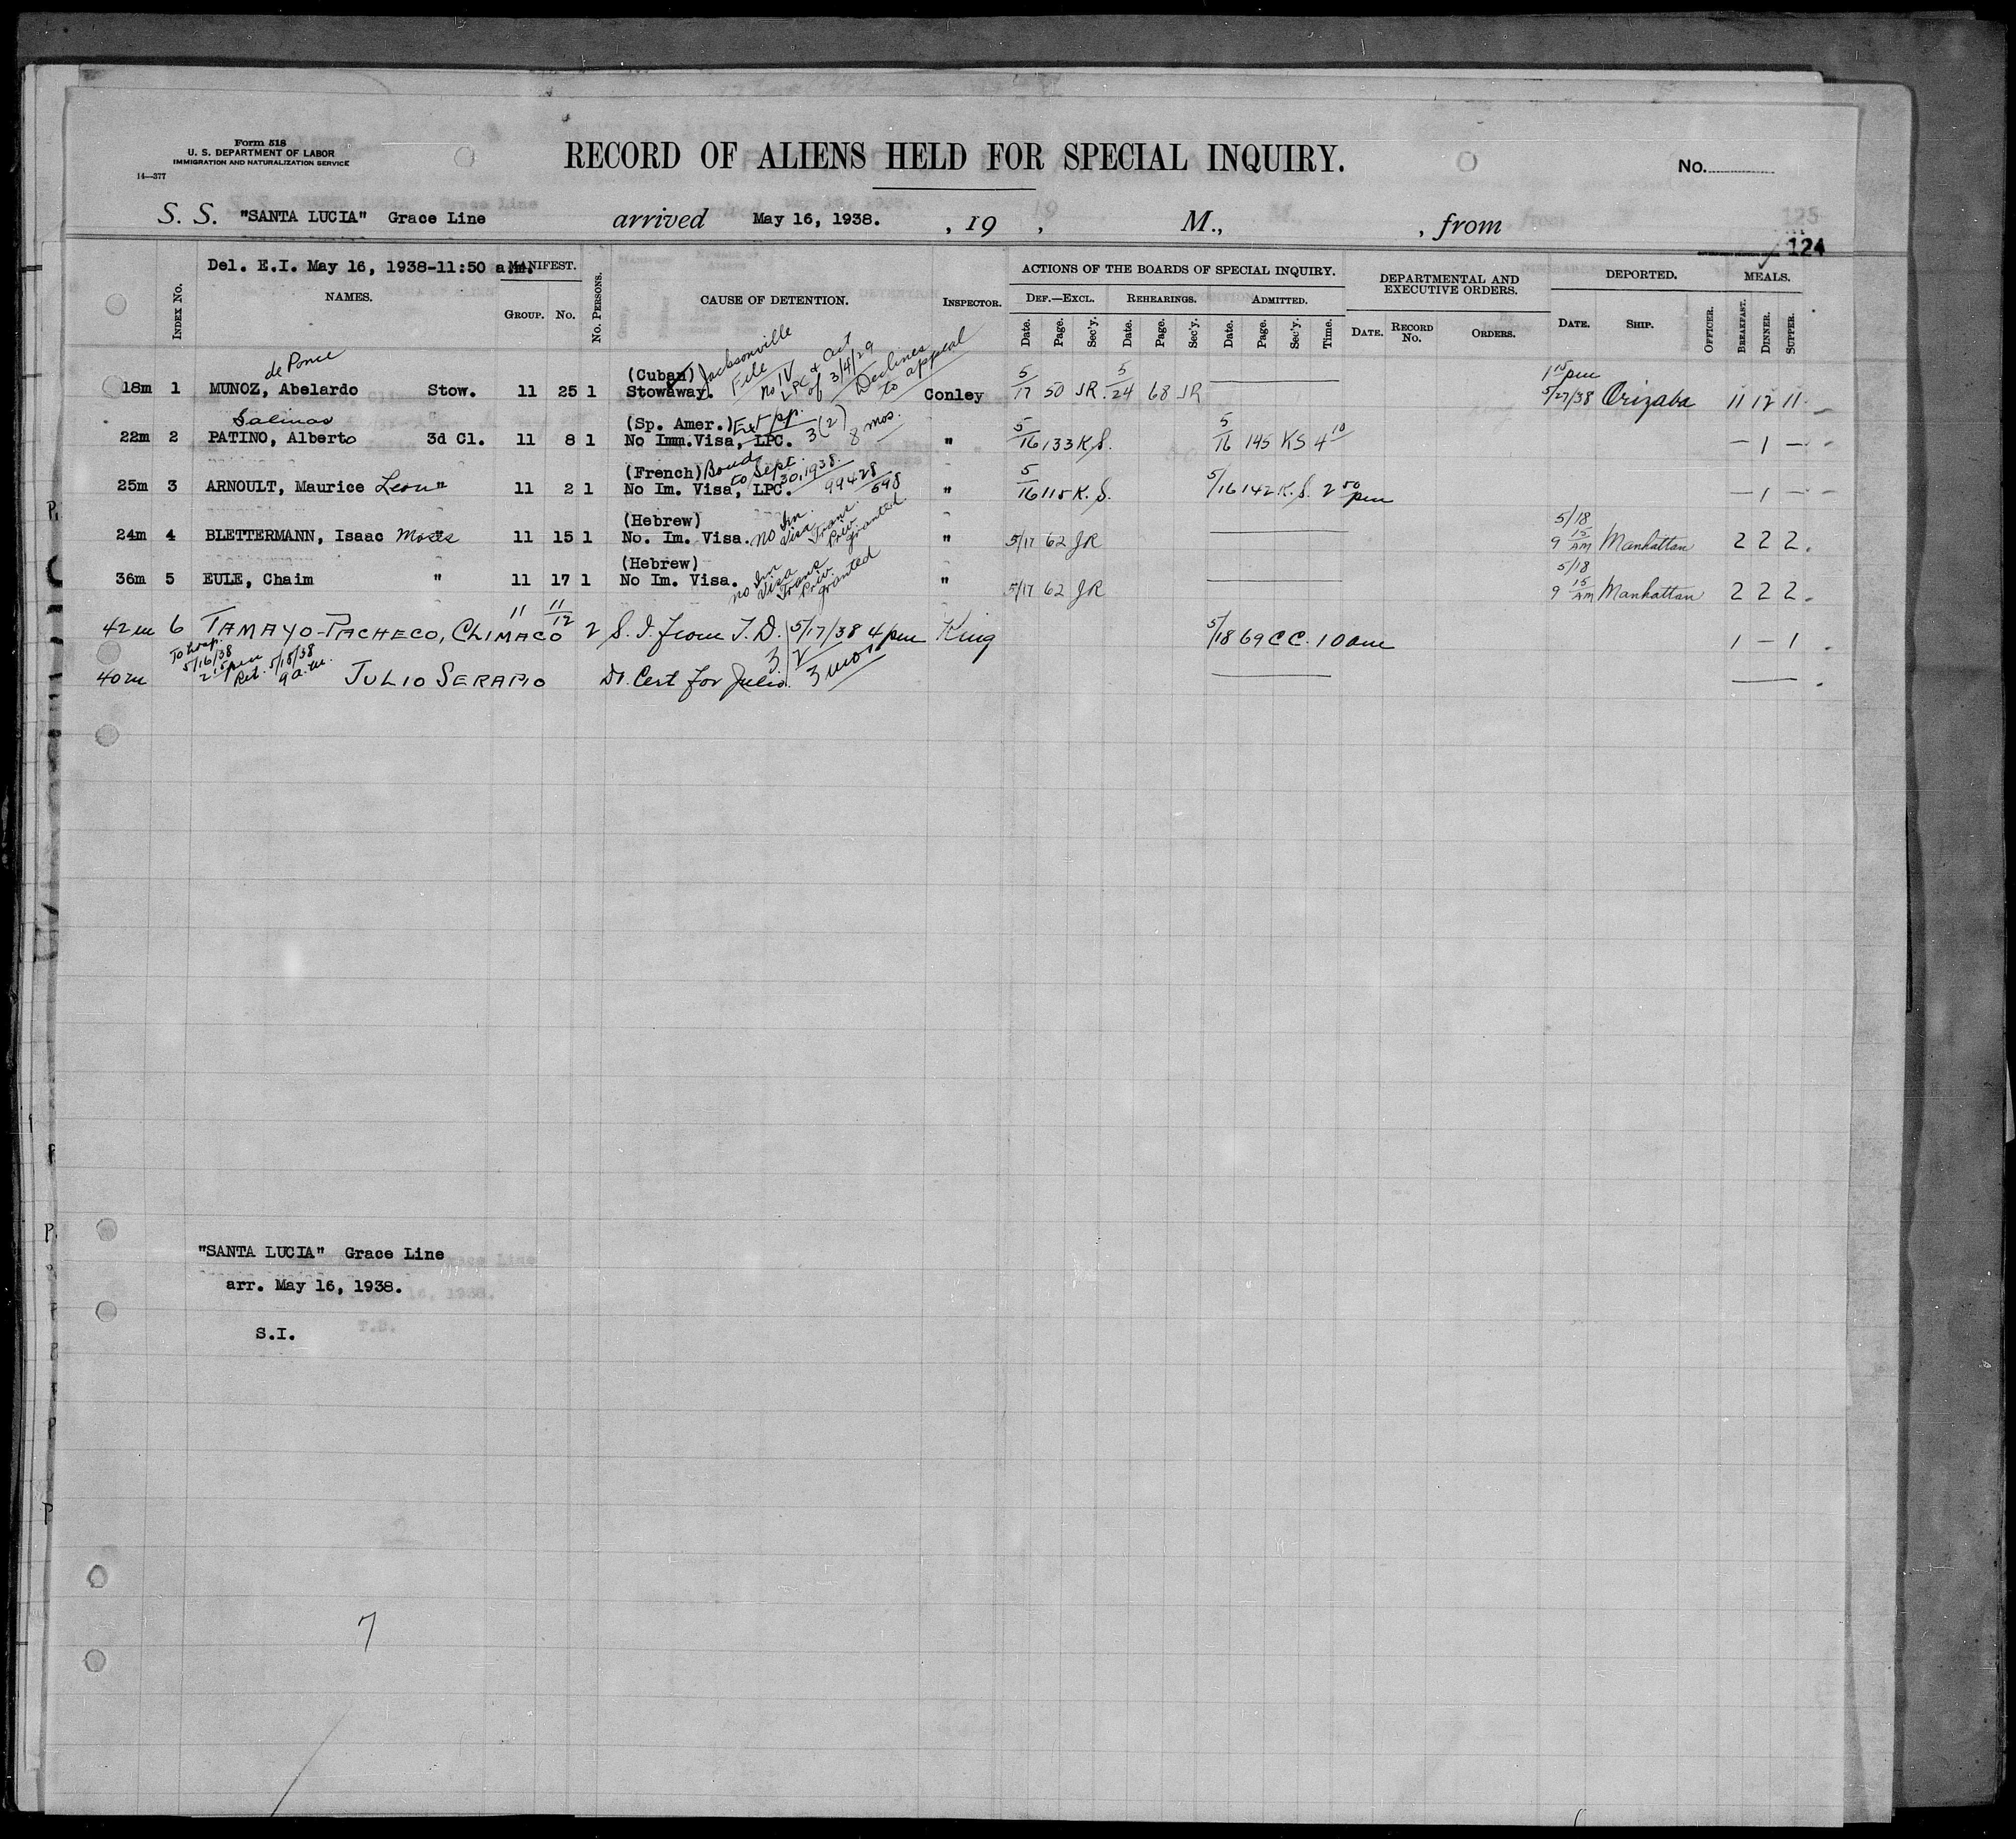 Form 518
U. S. DEPARTMENT OF LABOR
IMMIGRATION AND NATURALIZATION SERVICE
14—377
RECORD OF ALIENS HELD FOR SPECIAL INQUIRY.
No.
S. S. "SANTA LUCIA" Grace Line arrived May 16, 1938. , 19 , M., , from
125
124
Del. E.I. May 16, 1938-11:50 a.m.
INDEX No. NAMES. MANIFEST. GROUP. No. No. PERSONS. CAUSE OF DETENTION. INSPECTOR.
ACTIONS OF THE BOARDS OF SPECIAL INQUIRY. DEPARTMENTAL AND EXECUTIVE ORDERS. DEPORTED. MEALS.
DEF.—EXCL. REHEARINGS. ADMITTED.
Date. Page. Sec'y. Date. Page. Sec'y. Date. Page. Sec'y. Time. DATE. RECORD No. ORDERS. DATE. SHIP. OFFICER. BREAKFAST. DINNER. SUPPER.
de Ponce (Cuban) Jacksonville File No IV LPC & Act of 3/4/29 Declines to appeal
18m 1 MUNOZ, Abelardo Stow. 11 25 1 Stowaway. Conley 5/17 50 JR. 5/24 68 JR 1 10 pm 5/27/38 Orizaba 11 12 11
Salinas (Sp. Amer.) Ext pp. 3(2) 8 mos.
22m 2 PATINO, Alberto 3d Cl. 11 8 1 No Imm.Visa, LPC. " 5/16 133 K.S. 5/16 145 KS 4 10 — 1 —
(French) Bond to Sept. 30, 1938. 99428/598
25m 3 ARNOULT, Maurice Leon " 11 2 1 No Im. Visa, LPC. " 5/16 115 K.S. 5/16 142 K.S. 2 50 pm — 1 —
(Hebrew) no Im Visa Trans Priv. granted
24m 4 BLETTERMANN, Isaac Moses " 11 15 1 No. Im. Visa. " 5/17 62 JR 5/18 9 15 AM Manhattan 2 2 2
(Hebrew) no Im Visa Trans Priv. granted
36m 5 EULE, Chaim " 11 17 1 No Im. Visa. " 5/17 62 JR 5/18 9 15 AM Manhattan 2 2 2
42m 6 TAMAYO-PACHECO, CLIMACO 11 11/12 2 S.I. from T.D. 5/17/38 4 pm King 5/18 69 CC. 10 am 1 — 1
To hosp. 5/16/38 2 15 pm Ret. 5/18/38 9 a.m.
40m JULIO SERAPIO Dr. Cert for Julio. 3 2 3 mos
"SANTA LUCIA" Grace Line
arr. May 16, 1938.
S.I.
7